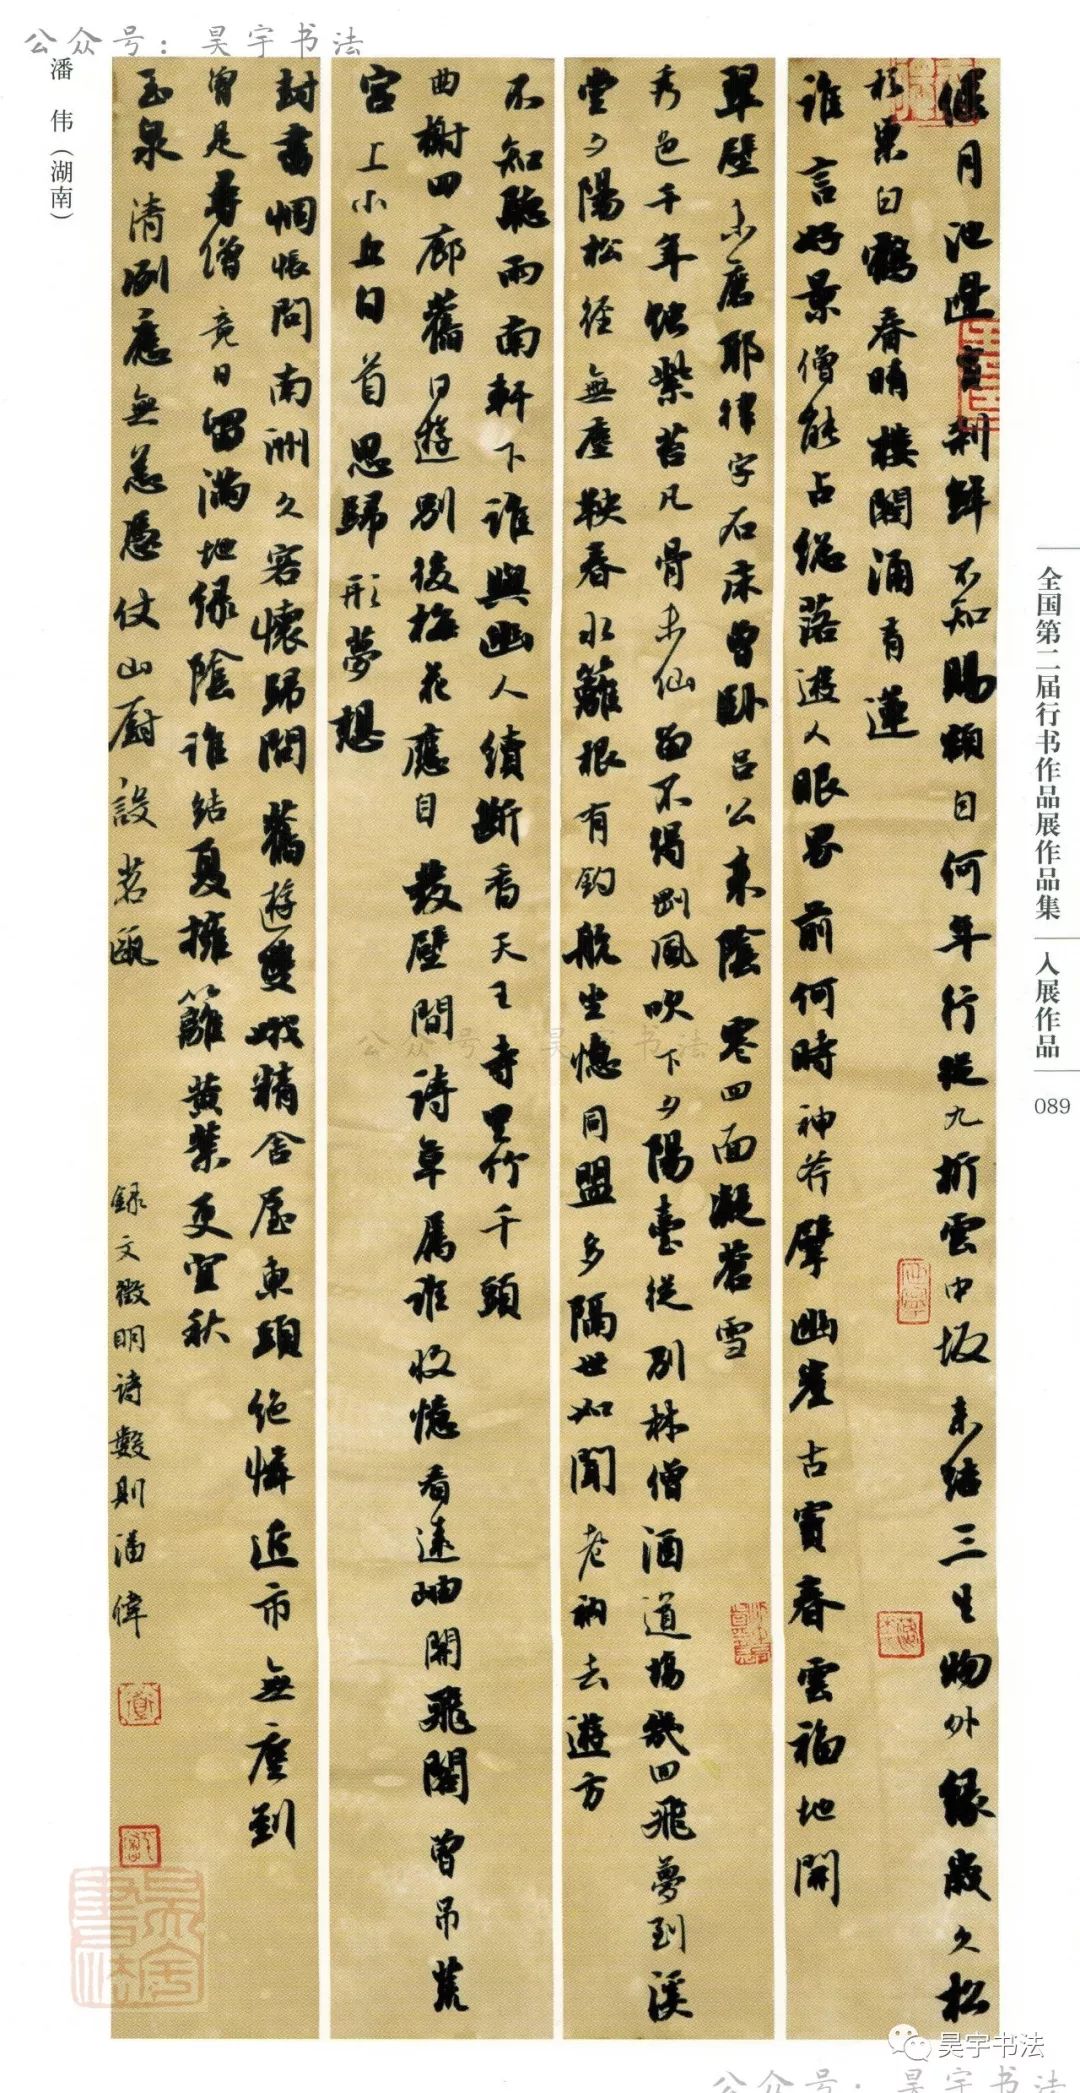 公众号：昊宇书法
潘 伟（湖南）
偃月池邊古刹鲜不知賜額自何年行從九折雲中坂未結三生物外緣歲久松
杉巢白鶴春晴樓閣涌青蓮
誰言好景僧能占總落遊人眼界前何時神斧擘幽崖古竇春雲福地開
翠壁未磨耶律字石床曾卧呂公來陰零四面凝蒼雪
秀色千年蝕紫苔凡骨未仙留不得剛風吹下夕陽臺從別林僧酒道場幾回飛夢到溪
堂夕陽松徑無塵鞅春水籬根有釣航坐憶同盟多隔世如聞老衲去遊方
不知聽雨南軒下誰與幽人續斷香天王寺里竹千頭
曲榭回廊舊日遊別後梅花應自發壁間詩草爲誰收憶看遠岫開飛閣曾吊荒
宫上小丘白首思歸形夢想
封書惆悵問南洲久客懷歸問舊遊雙峨精舍屋東頭絶憐近市無塵到
曾是尋僧竟日留滿地緑陰誰結夏擁籬黄葉更宜秋
玉泉清冽應無恙憑仗山厨設茗甌
錄文徵明詩數則潘偉
全国第二届行书作品展作品集
入展作品
089
公众号：昊宇书法
昊宇书法
公众号：昊宇书法